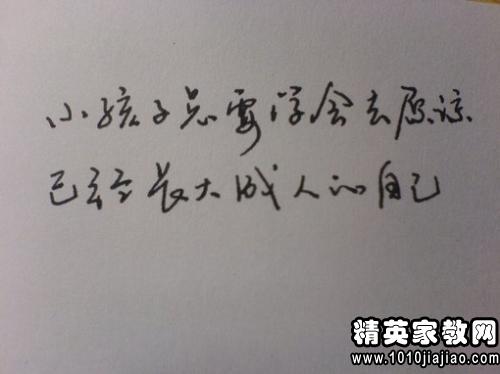 小孩子总要学会去原谅
已经长大成人的自己
精英家教网
www.1010jiajiao.com